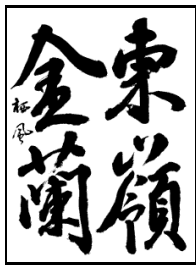 東嶺
金蘭
征風